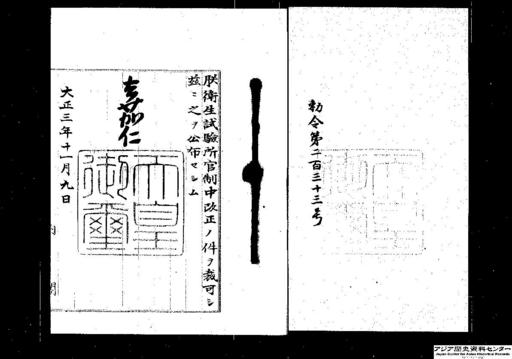 勅令第二百三十三号
朕衛生試験所官制中改正ノ件ヲ裁可シ
茲ニ之ヲ公布セシム
嘉仁
天皇
御璽
大正三年十一月九日
アジア歴史資料センター
Japan Center for Asian Historical Records